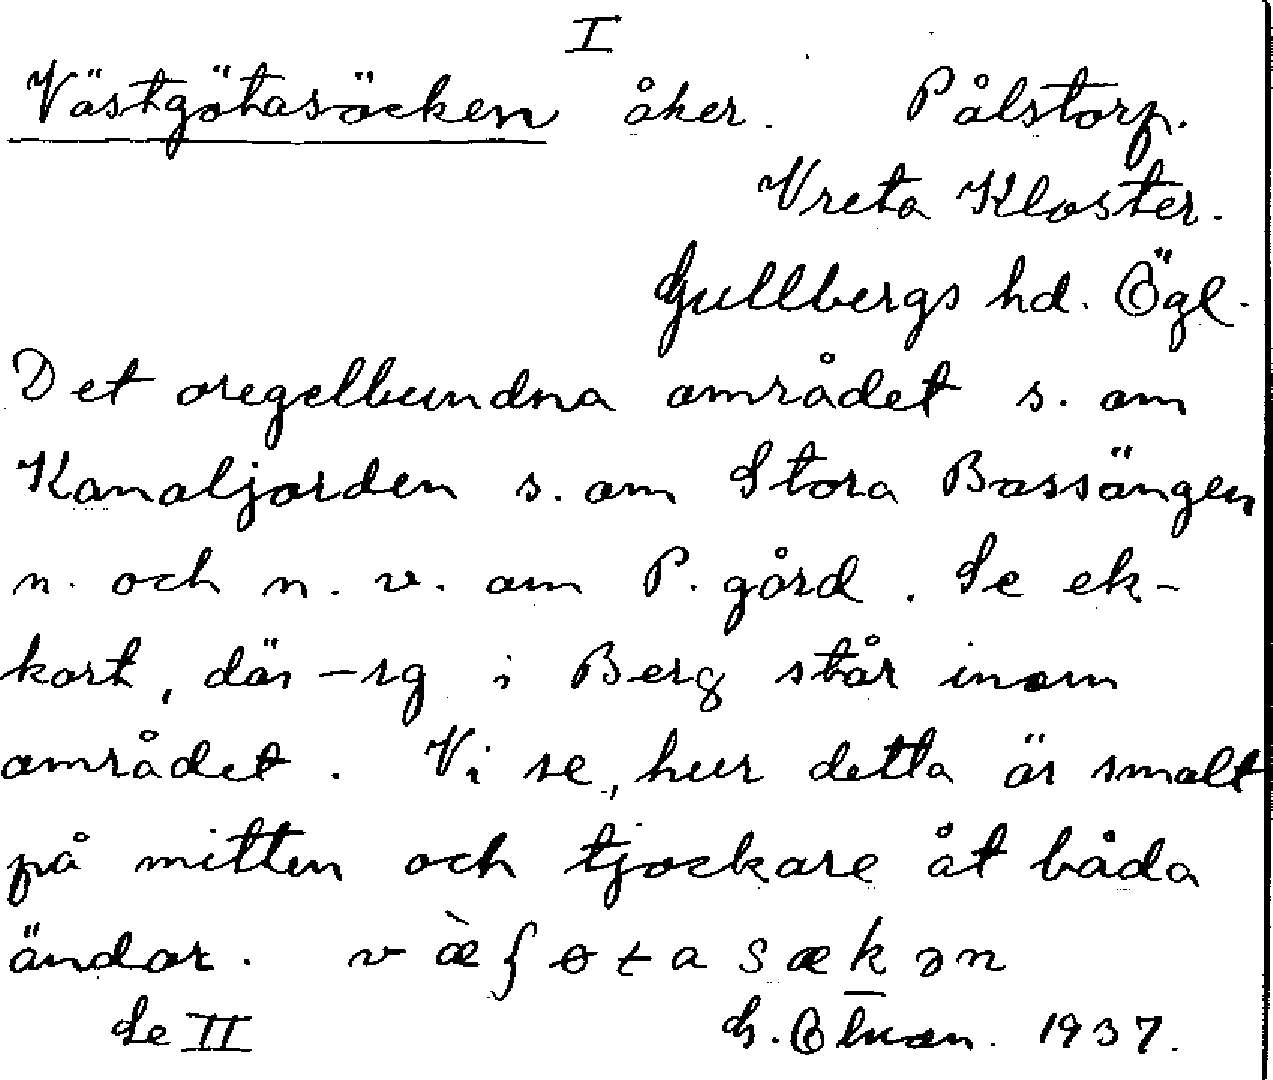 I
Västgötasäcken åker. Pålstorp.
Vreta Kloster.
Gullbergs hd. Ögl.
Det oregelbundna området s. om
Kanaljorden s. om Stora Bassängen
n. och n. v. om P. gård. Se ek-
kart, där -rg i Berg står inom
området. Vi se, hur detta är smalt
på mitten och tjockare åt båda
ändar. v æ̀ ʃ ɵ t a s æ k ə n
Se II 1937.